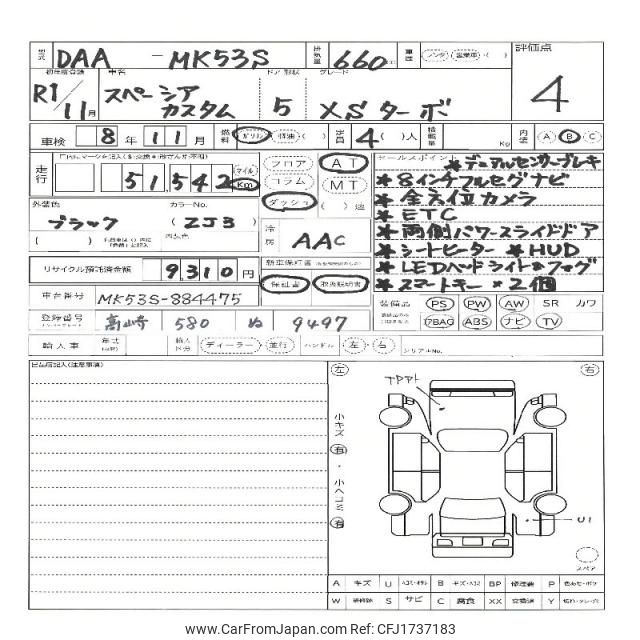 型式 DAA - MK53S 排気量 660cc 車歴 レンタ 営業車 ( ) 評価点
初年度登録 車名 ドア 形状 グレード
R1/11月 スペーシア カスタム 5 XS ターボ 4
車検 8年11月 燃料 ガソリン 軽油 ( ) 定員 4( )人 積載量 Kg 内装 A B C
走行 51,542 マイル Km
フロア AT
コラム MT
ダッシュ ( )速
セールスポイント *デュアルセンサーブレーキ
*8インチフルセグナビ
*全方位カメラ
*ETC
*両側パワースライドドア
*シートヒーター *HUD
*LEDヘッドライト&フォグ
*スマートキー×2個
外装色 カラーNo.
ブラック (ZJ3)
冷房 AAC
リサイクル預託済金額 9310円
新車保証書
保証書 取扱説明書
車台番号 MK53S-884475
装備品 PS PW AW SR カワ
ABS ナビ TV
登録番号 580 ぬ 9497
輸入車 年式 輸入区分 ディーラー 並行 ハンドル 左・右 シリアルNo.
出品店記入(注意事項)
左 右
小キズ 有・小ヘコミ 有
U1
スペア
A キズ U B BP P
W S サビ C 腐食 XX 交換済 Y
www.CarFromJapan.com | Ref No: CFJ1737183